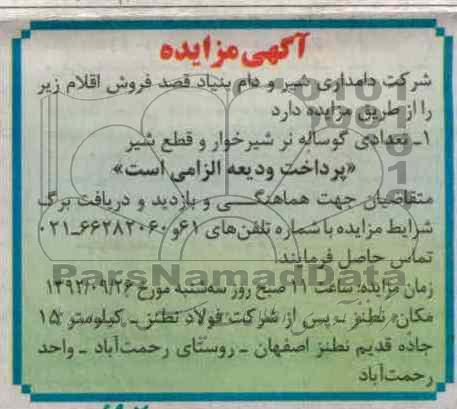 آگهی مزایده
شرکت دامداری شیر و دام بنیاد قصد فروش اقلام زیر
را از طریق مزایده دارد
۱ـ تعدادی گوساله نر شیرخوار و قطع شیر
«پرداخت ودیعه الزامی است»
متقاضیان جهت هماهنگی و بازدید و دریافت برگ
شرایط مزایده با شماره تلفن‌های ۶۱و ۶۶۲۸۲۰۶۰ـ۰۲۱
تماس حاصل فرمایند.
ParsNamadData
زمان مزایده: ساعت ۱۱ صبح روز سه‌شنبه مورخ ۱۳۹۲/۰۹/۲۶
مکان: نطنز ـ پس از شرکت فولاد نطنز ـ کیلومتر ۱۵
جاده قدیم نطنز اصفهان ـ روستای رحمت‌آباد ـ واحد
رحمت‌آباد